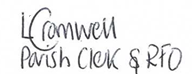 L Cromwell
Parish Clerk & RFO